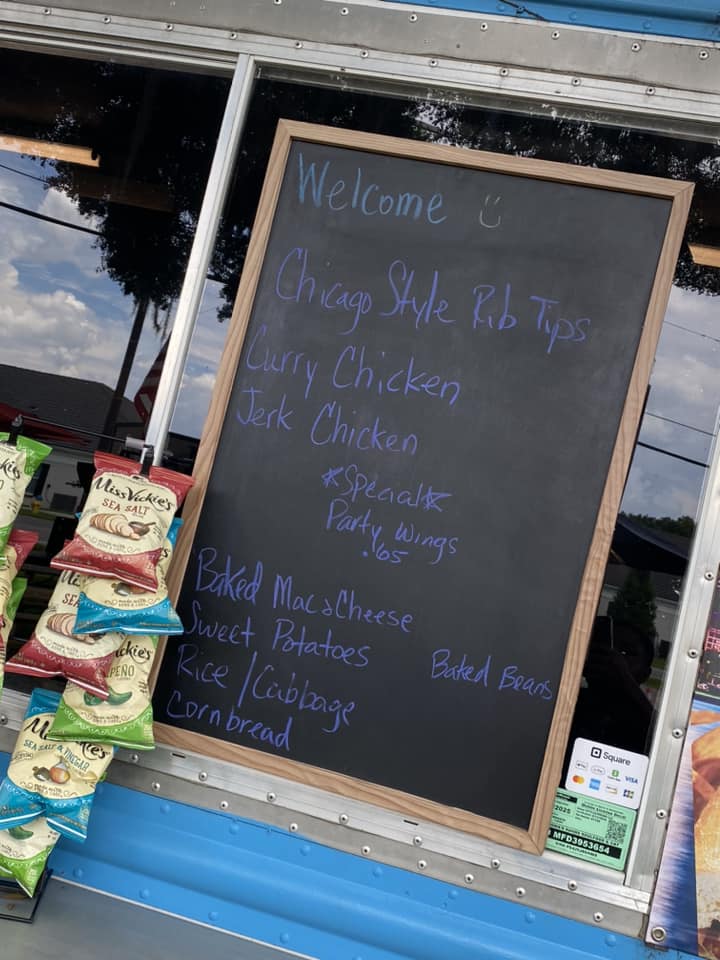 Welcome
Chicago Style Rib Tips
Curry Chicken
Jerk Chicken
*Special*
Party Wings
.65
Baked Mac & Cheese
Sweet Potatoes
Baked Beans
Rice / Cabbage
Cornbread
Miss Vickie's
SEA SALT
Miss Vickie's
SEA SALT & VINEGAR
Square
VISA
2025
MFD3953654